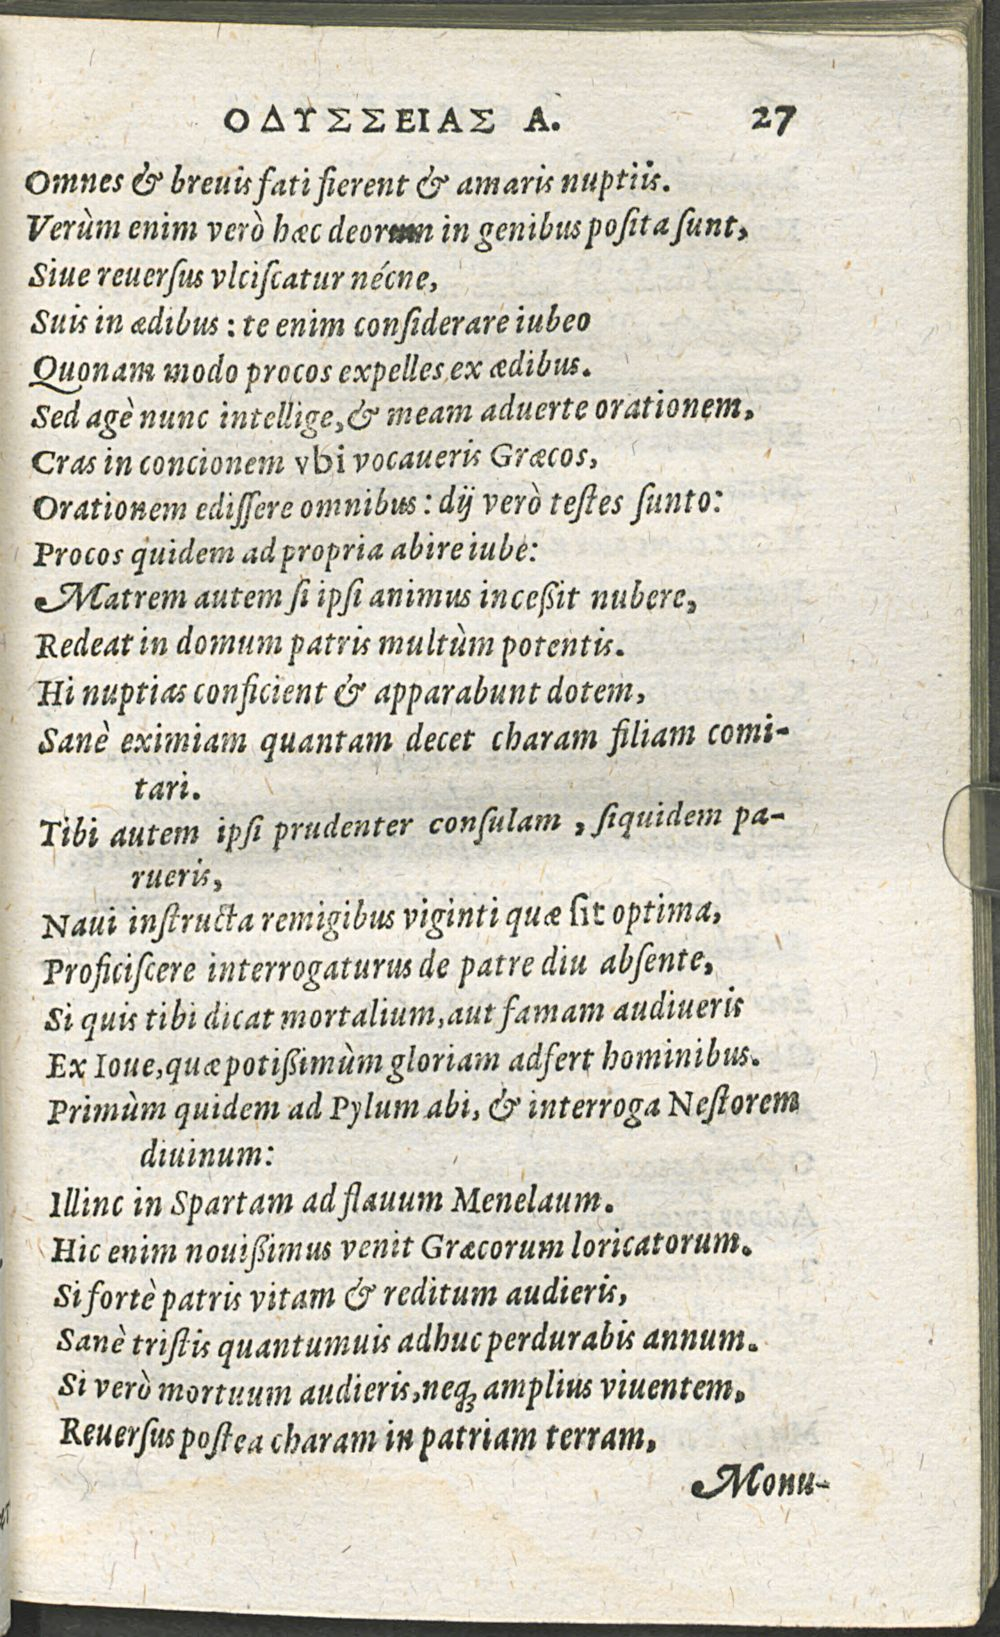 ΟΔΥΣΣΕΙΑΣ Α. 27
Omnes & breuis fati fierent & amaris nuptiis.
Verùm enim verò hæc deorum in genibus poſita ſunt,
Siue reuerſus vlciſcatur nécne,
Suis in ædibus : te enim conſiderare iubeo
Quonam modo procos expelles ex ædibus.
Sed agè nunc intellige, & meam aduerte orationem,
Cras in concionem vbi vocaueris Græcos,
Orationem ediſſere omnibus : dij verò teſtes ſunto:
Procos quidem ad propria abire iube:
Matrem autem ſi ipſi animus inceßit nubere,
Redeat in domum patris multùm potentis.
Hi nuptias conficient & apparabunt dotem,
Sanè eximiam quantam decet charam filiam comi-
tari.
Tibi autem ipſi prudenter conſulam , ſiquidem pa-
rueris,
Naui inſtructa remigibus viginti quæ ſit optima,
Proficiſcere interrogaturus de patre diu abſente,
Si quis tibi dicat mortalium, aut famam audiueris
Ex Ioue, quæ potißimùm gloriam adfert hominibus.
Primùm quidem ad Pylum abi, & interroga Neſtorem
diuinum:
Illinc in Spartam ad flauum Menelaum.
Hic enim nouißimus venit Græcorum loricatorum.
Si fortè patris vitam & reditum audieris,
Sanè triſtis quantumuis adhuc perdurabis annum.
Si verò mortuum audieris, neq; amplius viuentem,
Reuerſus poſtea charam in patriam terram,
Monu-